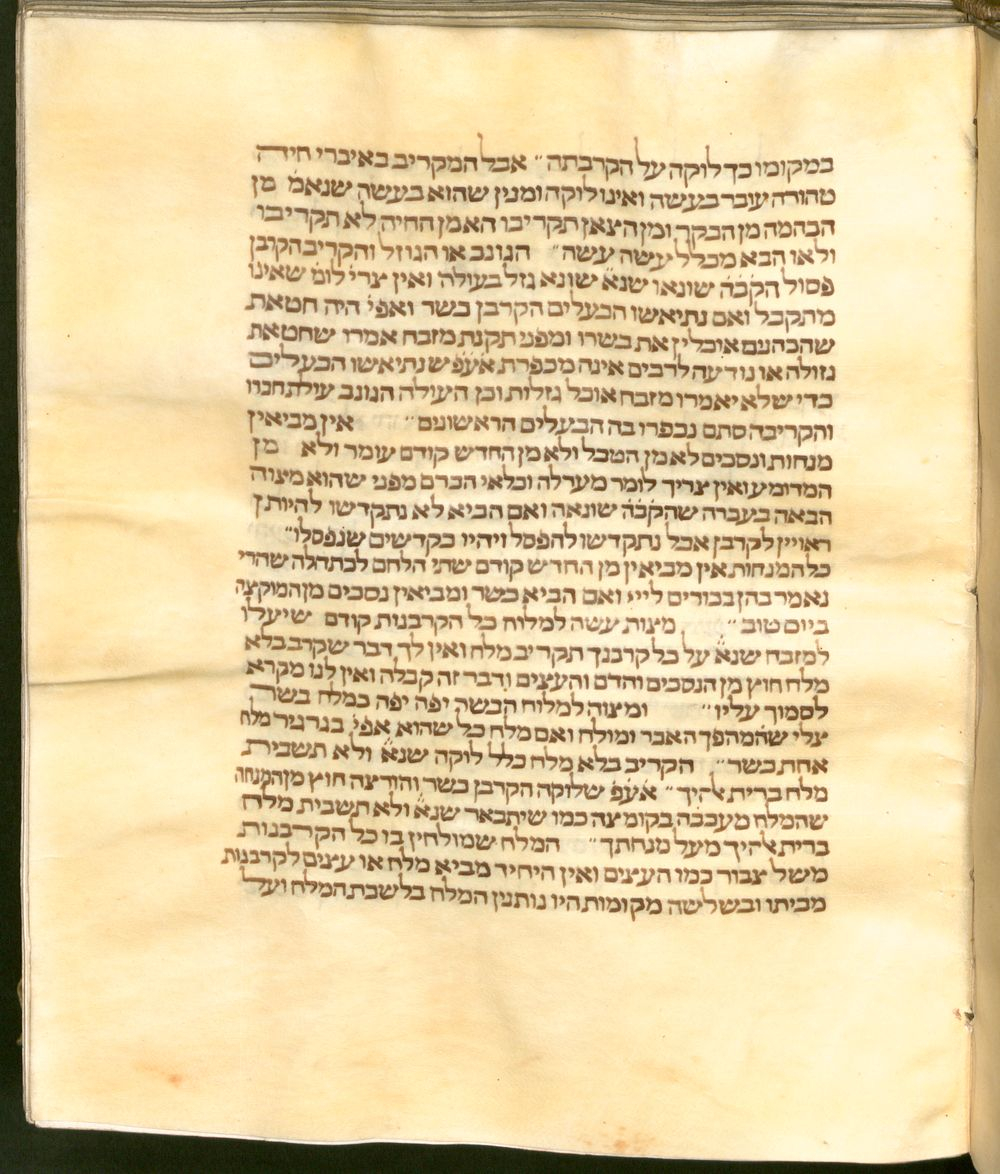 במקומו כך לוקה על הקרבתה״ אבל המקריב באיברי חיה
טהורה עובר בעשה ואינו לוקה ומנין שהוא בעשה שנאמ׳ מן
הבהמה מן הבקר ומן הצאן תקריבו הא מן החיה לא תקריבו
ולאו הבא מכלל עשה עשה״ הגונב או הגוזל והקריב הקרבן
פסול הקב״ה שונאו שנא׳ שונא גזל בעולה ואין צרי׳ לומ׳ שאינו
מתקבל ואם נתיאשו הבעלים הקרבן כשר ואפי׳ היה חטאת
שהכהנים אוכלין את בשרו ומפני תקנת מזבח אמרו שחטאת
גזולה או נודעה לרבים אינה מכפרת אעפ׳ שנתיאשו הבעלים
כדי שלא יאמרו מזבח אוכל גזלות וכן העולה הגונב עולת חברו
והקריבה סתם נכפרו בה הבעלים הראשונים״ אין מביאין
מנחות ונסכים לא מן הטבל ולא מן החדש קודם עומר ולא מן
המדומע ואין צריך לומר מערלה וכלאי הכרם מפני שהוא מצוה
הבאה בעברה שהקב״ה שונאה ואם הביא לא נתקדשו להיותן
ראויין לקרבן אבל נתקדשו להפסל ויהיו כקדשים שנפסלו״
כל המנחות אין מביאין מן החדש קודם שתי הלחם לכתחלה שהרי
נאמר בהן בכורים ליי׳ ואם הביא כשר ומביאין נסכים מן המוקצה
ביום טוב״ מצות עשה למלוח כל הקרבנות קודם שיעלו
למזבח שנא׳ על כל קרבנך תקריב מלח ואין לך דבר שקרב בלא
מלח חוץ מן הנסכים והדם והעצים ודבר זה קבלה ואין לנו מקרא
לסמוך עליו״ ומצוה למלוח הבשר יפה יפה כמלח בשר
צלי שהמהפך האבר ומולח ואם מלח כל שהוא אפי׳ בגרגיר מלח
אחת כשר״ הקריב בלא מלח כלל לוקה שנא׳ ולא תשבית
מלח ברית אלהיך״ אעפ׳ שלוקה הקרבן כשר והורצה חוץ מן המנחה
שהמלח מעכבה בקומצה כמו שיתבאר שנא׳ ולא תשבית מלח
ברית אלהיך מעל מנחתך״ המלח שמולחין בו כל הקרבנות
משל צבור כמו העצים ואין היחיד מביא מלח או עצים לקרבנות
מביתו ובשלשה מקומות היו נותנין המלח בלשכת המלח ועל